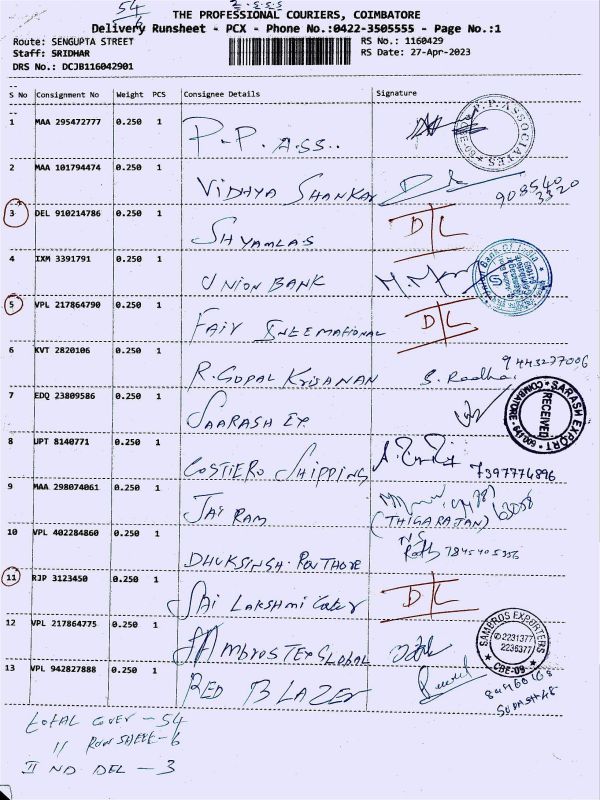 54
THE PROFESSIONAL COURIERS, COIMBATORE
Delivery Runsheet - PCX - Phone No.:0422-3505555 - Page No.:1
Route: SENGUPTA STREET RS No.: 1160429
Staff: SRIDHAR RS Date: 27-Apr-2023
DRS No.: DCJB116042901
S No Consignment No Weight PCS Consignee Details Signature
1 MAA 295472777 0.250 1 P.P. ASS.. P.P. ASSOCIATES
2 MAA 101794474 0.250 1 VIDHYA SHANKAR 908540 3320
3 DEL 910214786 0.250 1 SHYAMLAS D/L
4 IXM 3391791 0.250 1 UNION BANK Bank of India
5 VPL 217864790 0.250 1 FAIR INTERNATIONAL D/L
6 KVT 2820106 0.250 1 R. GOPAL KRISHNAN S. Radha 9443277006
7 EDQ 23809586 0.250 1 SAARASH EX SARASH EXPORT RECEIVED COIMBATORE - 641009
8 UPT 8140771 0.250 1 COSTIERO SHIPPING 7397774896
9 MAA 298074061 0.250 1 JAI RAM (THIGARAJAN)
10 VPL 402284860 0.250 1 DHUKSINGH. RATHORE 7845405356
11 RJP 3123450 0.250 1 SAI LAKSHMI D/L
12 VPL 217864775 0.250 1 SAMBROS TEX GLOBAL SAMBROS EXPORTERS 2231377 2236377 CBE-09
13 VPL 942827888 0.250 1 RED BLAZER
TOTAL COVER - 54
11 RUNSHEET - 6
II ND DEL - 3